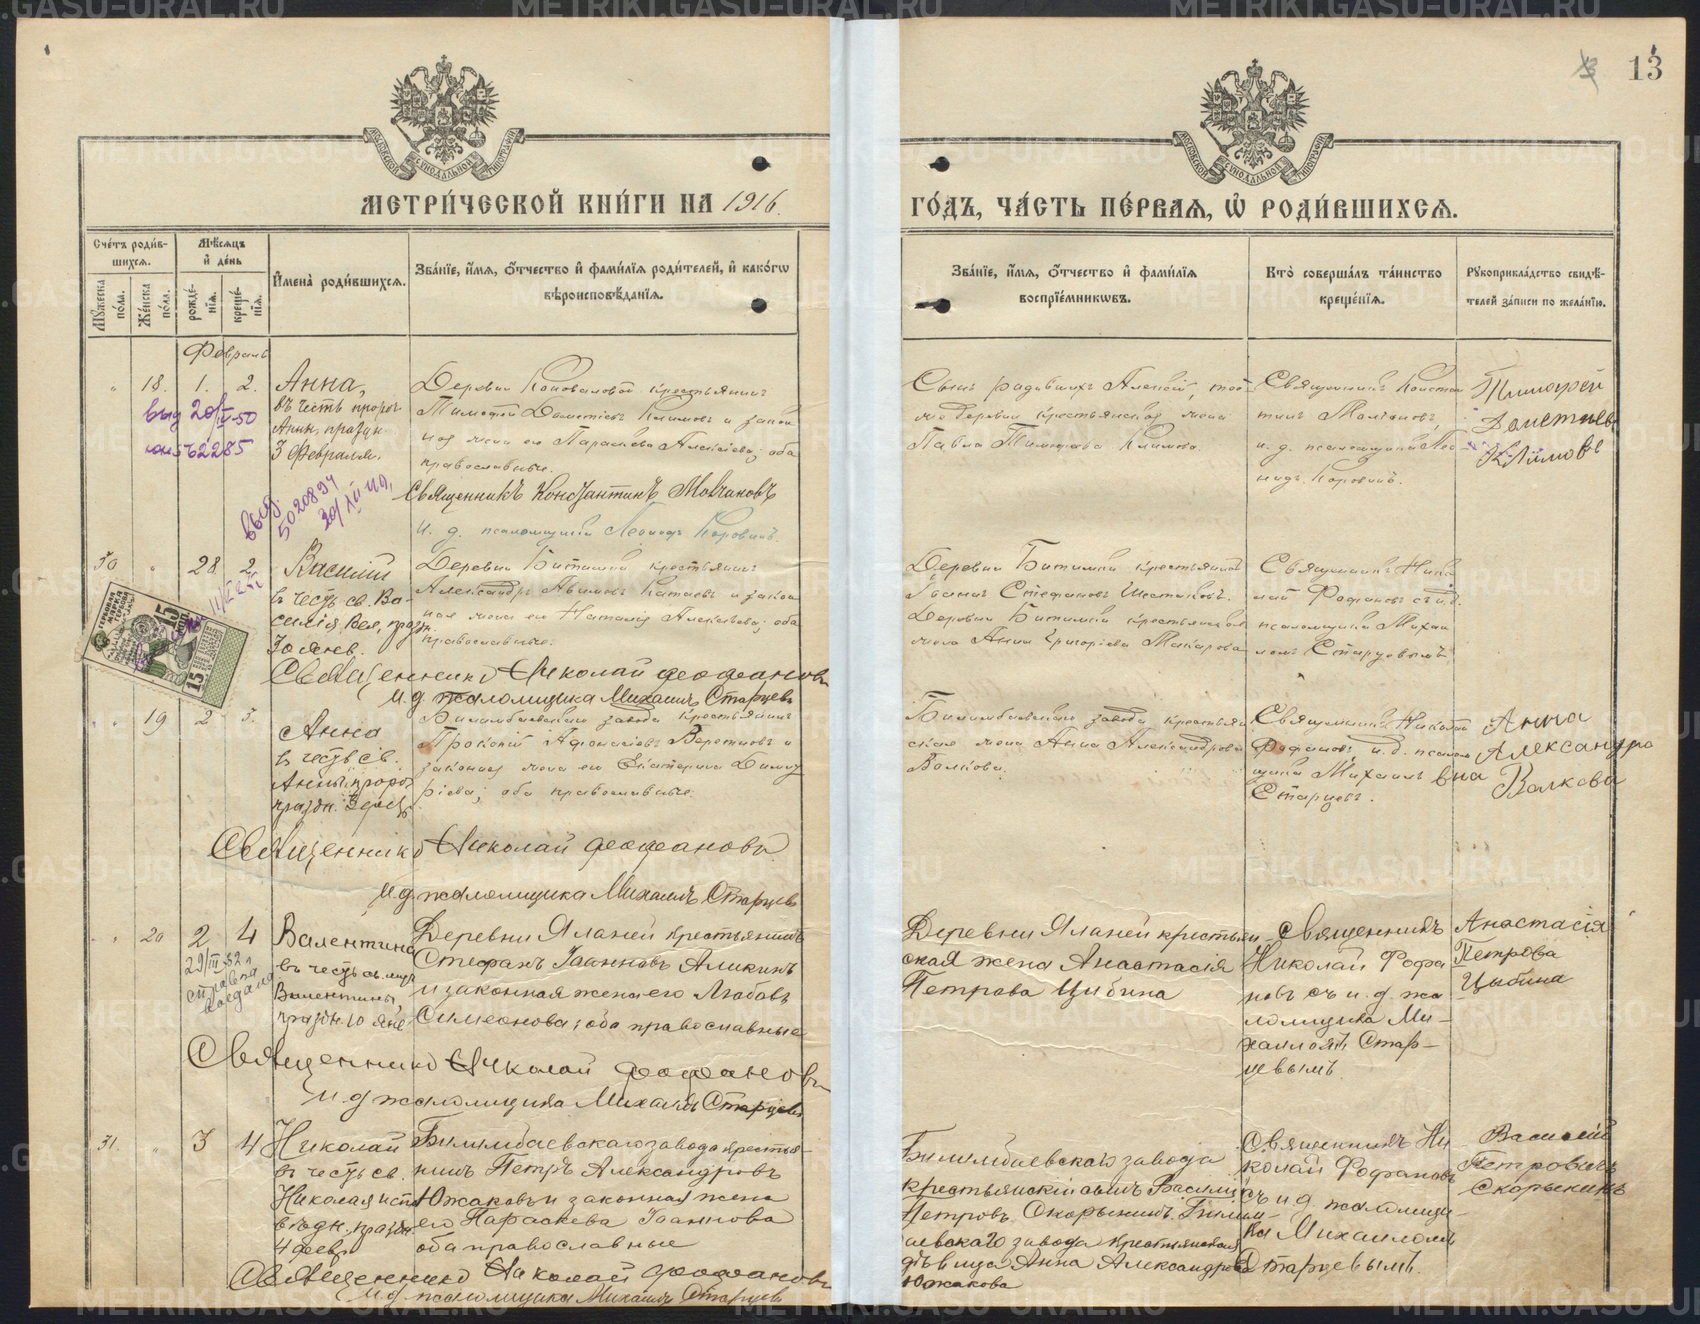 13
МЕТРИ́ЧЕСКОЙ КНИ́ГИ НА 1916
ГО́ДЪ, ЧА́СТЬ ПЕ́РВАЯ, Ѽ РОДИ́ВШИХСЯ.
Сче́тъ роди́в-
шихся.
Мѣ́сяцъ
и҆ де́нь
Мꙋ́жеска по́ла.
Же́нска по́ла.
рожде́-
нїя.
креще́-
нїя.
И҆мена̀ роди́вшихся.
Зва́нїе, и҆́мѧ, ѻ҆́тчество и҆ фами́лїѧ роди́телей, и҆ како́гѡ
вѣроисповѣ́данїѧ.
Зва́нїе, и҆́мѧ, ѻ҆́тчество и҆ фами́лїѧ
воспрїе́мникѡвъ.
Кто̀ соверша́лъ та́инство
креще́нїѧ.
Рꙋкоприкла́дство свидѣ́-
телей за́писи по жела́нїю.
Февраль
18. 1. 2.
Анна,
въ честь прор.
Анны, праздн.
3 Февраля.
выд 20/V-50
Деревни Коноваловой крестьянинъ
Тимофей Дометіевъ Климовъ и закон
ная жена его Параскева Алексіева; оба
православные.
Священникъ Константинъ Молчановъ
И. д. псаломщика Леонидъ Коровинъ.
Сынъ родившихъ Алексій, той
же деревни крестьянская жена
Павла Тимофеева Климова.
Священникъ Констан
тинъ Молчановъ,
и. д. псаломщика Лео
нидъ Коровинъ.
Тимофей
Дометиевъ
Климовъ
выд.
5020894
30/XII 49
30 28 2
Василій
въ честь св. Ва-
силія Вел. праздн.
30 янв.
Деревни Битимки крестьянинъ
Александръ Авимовъ Катаевъ и закон
ная жена его Наталія Алексѣева; оба
православные.
Священникъ Николай Феофановъ
И.д. псаломщика Михаилъ Старцевъ
Деревни Битимки крестьянинъ
Іоаннъ Стефановъ Шестаковъ.
Деревни Битимки крестьянская
жена Анна Григоріева Макарова
Священникъ Нико
лай Фофановъ съ и.д.
псаломщика Михаи
ломъ Старцевымъ
15
15
19 2 3.
Анна
въ честь св.
Анны пророч.
праздн. 3 февр.
Билимбаевскаго завода крестьянинъ
Прокопій Афонасіевъ Веретновъ и
законная жена его Екатерина Димит
ріева; оба православные.
Священникъ Николай Феофановъ
И.д. псаломщика Михаилъ Старцевъ
Билимбаевскаго завода крестьян
ская жена Анна Александрова
Волкова.
Священникъ Николай
Фофановъ и.д. псалом
щика Михаилъ
Старцевъ.
Анна
Александро
вна Волкова
20 2 4
Валентина
въ честь св. муч.
Валентины,
праздн. 10 Фев.
29/III-82 г.
справка
выдана
Деревни Яланей крестьянинъ
Стефанъ Іоанновъ Аликинъ
и законная жена его Любовь
Симеонова; оба православные
Священникъ Николай Феофановъ
И.д псаломщика Михаилъ Старцевъ
Деревни Яланей крестьян
ская жена Анастасія
Петрова Цыбина
Священникъ
Николай Фофа
новъ съ и.д. пса
ломщика Ми-
хаиломъ Стар-
цевымъ.
Анастасія
Петрова
Цыбина
31. 3 4
Николай
въ честь св.
Николая исп.
праздн
4 февр
Билимбаевскаго завода крестья-
нинъ Петръ Александровъ
Южаковъ и законная жена
его Параскева Іоаннова
оба православные
Священникъ Николай Феофановъ
И.д псаломщика Михаилъ Старцевъ
Билимбаевскаго завода
крестьянскій сынъ Василій
Петровъ Скорынинъ. Билим-
баевскаго завода крестьянская
дѣвица Анна Александрова
Южакова
Священникъ Ни
колай Фофановъ
съ и д. псаломщи-
ка Михаиломъ
Старцевымъ.
Василій
Петровичъ
Скорынинъ